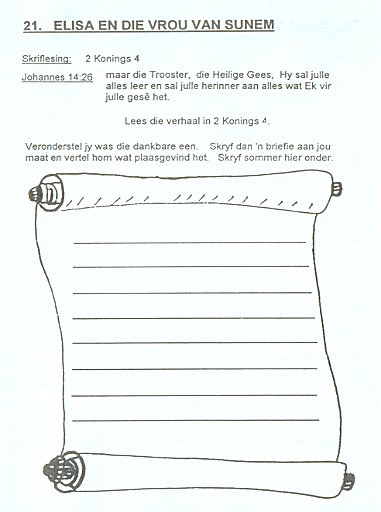 21. ELISA EN DIE VROU VAN SUNEM
Skriflesing: 2 Konings 4
Johannes 14:26 maar die Trooster, die Heilige Gees, Hy sal julle
alles leer en sal julle herinner aan alles wat Ek vir
julle gesê het.
Lees die verhaal in 2 Konings 4.
Veronderstel jy was die dankbare een. Skryf dan 'n briefie aan jou
maat en vertel hom wat plaasgevind het. Skryf sommer hier onder.